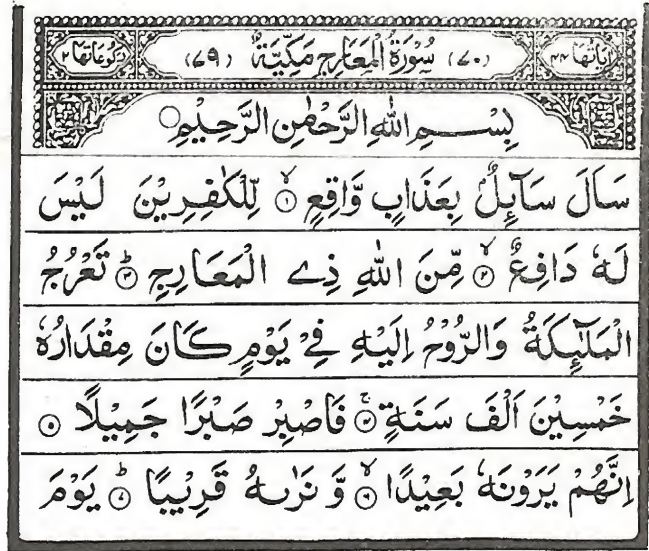 اٰیَاتُهَا ۴۴ (۷۰) سُوْرَةُ الْمَعَارِجِ مَكِّیَّةٌ (۷۹) رُكُوْعَاتُهَا ۲
بِسْمِ اللّٰهِ الرَّحْمٰنِ الرَّحِیْمِ ○
سَاَلَ سَآئِلٌۢ بِعَذَابٍ وَّاقِعٍ ۙ﴿۱﴾ لِّلْكٰفِرِیْنَ لَیْسَ
لَهٗ دَافِعٌ ۙ﴿۲﴾ مِّنَ اللّٰهِ ذِی الْمَعَارِجِ ؕ﴿۳﴾ تَعْرُجُ
الْمَلٰٓئِكَةُ وَالرُّوْحُ اِلَیْهِ فِیْ یَوْمٍ كَانَ مِقْدَارُهٗ
خَمْسِیْنَ اَلْفَ سَنَةٍ ۚ﴿۴﴾ فَاصْبِرْ صَبْرًا جَمِیْلًا ﴿۵﴾
اِنَّهُمْ یَرَوْنَهٗ بَعِیْدًا ۙ﴿۶﴾ وَّ نَرٰىهُ قَرِیْبًا ؕ﴿۷﴾ یَوْمَ